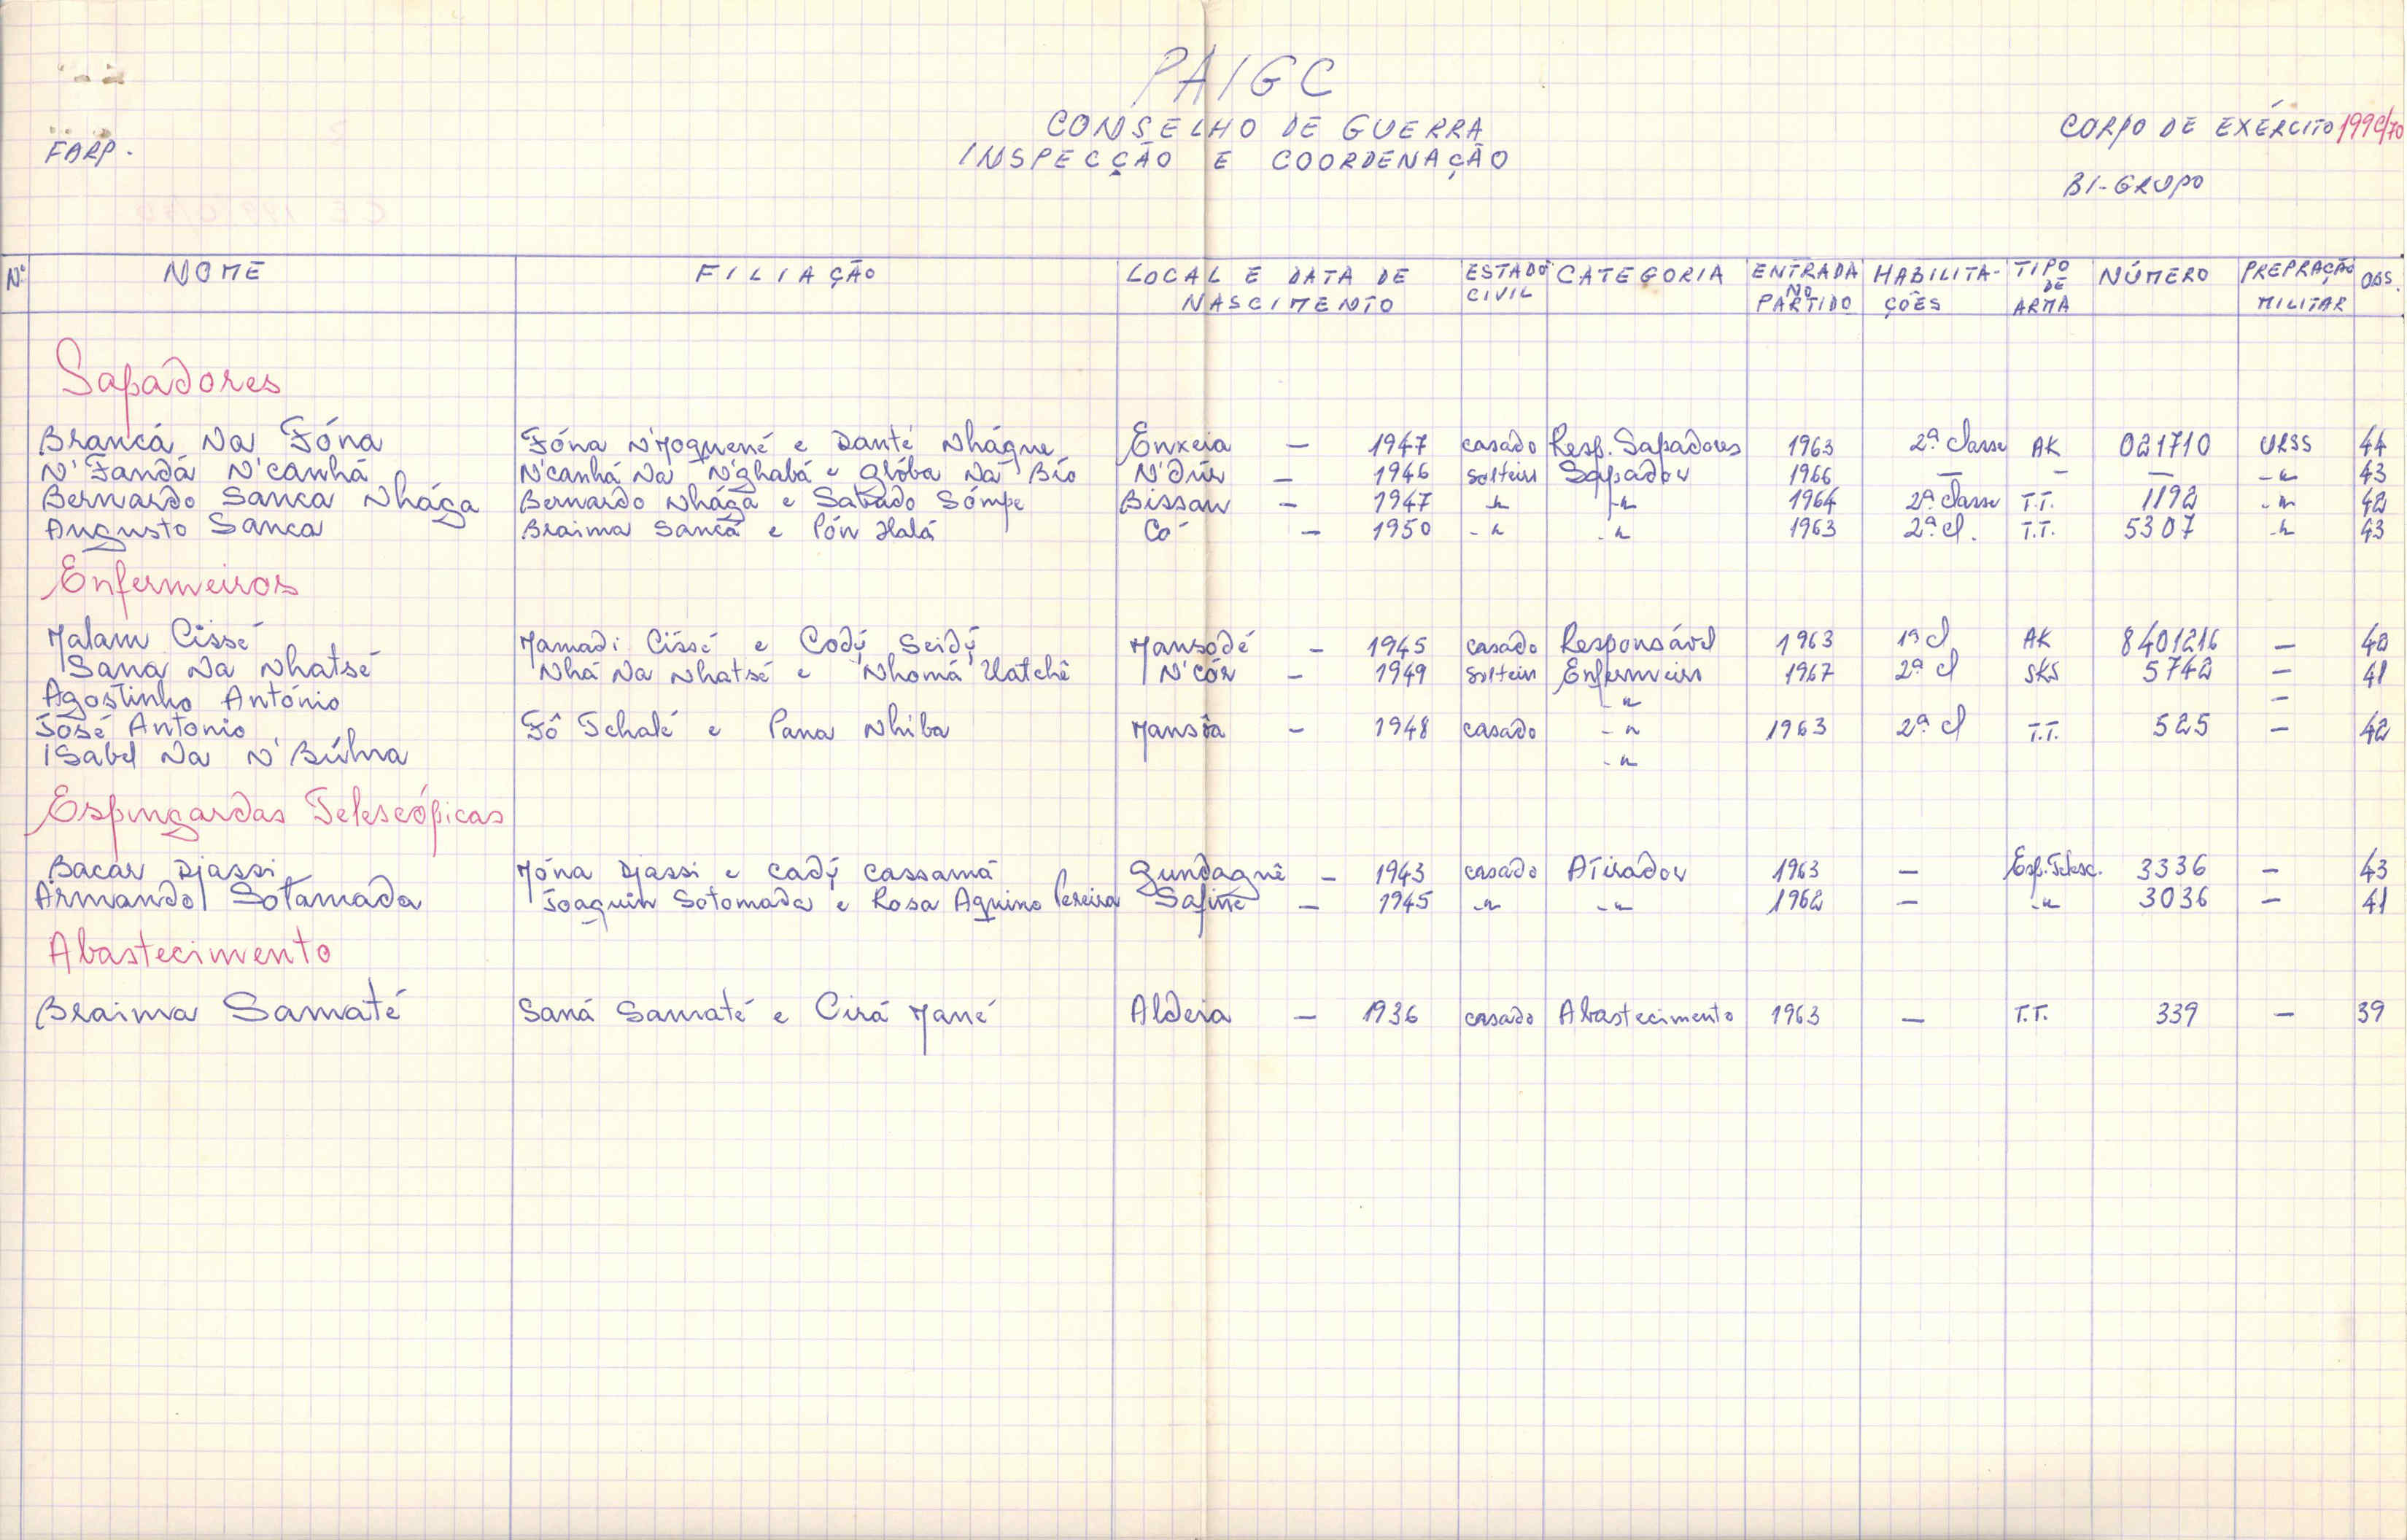 PAIGC
CONSELHO DE GUERRA
INSPECÇÃO E COORDENAÇÃO
FARP.
CORPO DE EXÉRCITO 199C/70
BI-GRUPO
Nº NOME FILIAÇÃO LOCAL E DATA DE NASCIMENTO ESTADO CIVIL CATEGORIA ENTRADA NO PARTIDO HABILITA-ÇÕES TIPO DE ARMA NÚMERO PREPRAÇÃO MILITAR OBS.
Sapadores
Brancá Na Fóna Fóna N'Moquené e Danté Nhágue Enxeia - 1947 casado Resp. Sapadores 1963 2ª classe AK 021710 URSS 44
N'Fandá N'canhá N'canhá Na N'ghabá e Glóba Na Bío N'dúr - 1946 solteiro Sapador 1966 - - - -"- 43
Bernardo Sanca Nhága Bernardo Nhága e Sabado Sómpe Bissau - 1947 -"- -"- 1964 2ª classe T.T. 1192 -"- 42
Augusto Sanca Braima Sancá e Pón Halá Có - 1950 -"- -"- 1963 2ª cl. T.T. 5307 -"- 43
Enfermeiros
Malam Cissé Mamadi Cissé e Cody Seidy Mansodé - 1945 casado Responsável 1963 1ª cl AK 8401216 - 40
Sana Na Nhatsé Nhá Na Nhatsé e Nhomá Uatchê N'Cór - 1949 solteiro Enfermeiro 1967 2ª cl SKS 5742 - 41
Agostinho António -"- -
José Antonio Fô Tchalé e Pana Nhiba Mansôa - 1948 casado -"- 1963 2ª cl T.T. 525 - 42
Isabel Na N'Búlna -"-
Espingardas Telescópicas
Bacar Djassi Móna Djassi e Cady Cassamá Gundaguê - 1943 casado Atirador 1963 - Esp. Telesc. 3336 - 43
Armando Sotamada Joaquin Sotomada e Rosa Aquino Pereira Safine - 1945 -"- -"- 1962 - -"- 3036 - 41
Abastecimento
Braima Samaté Saná Samaté e Cirá Mané Aldeia - 1936 casado Abastecimento 1963 - T.T. 339 - 39